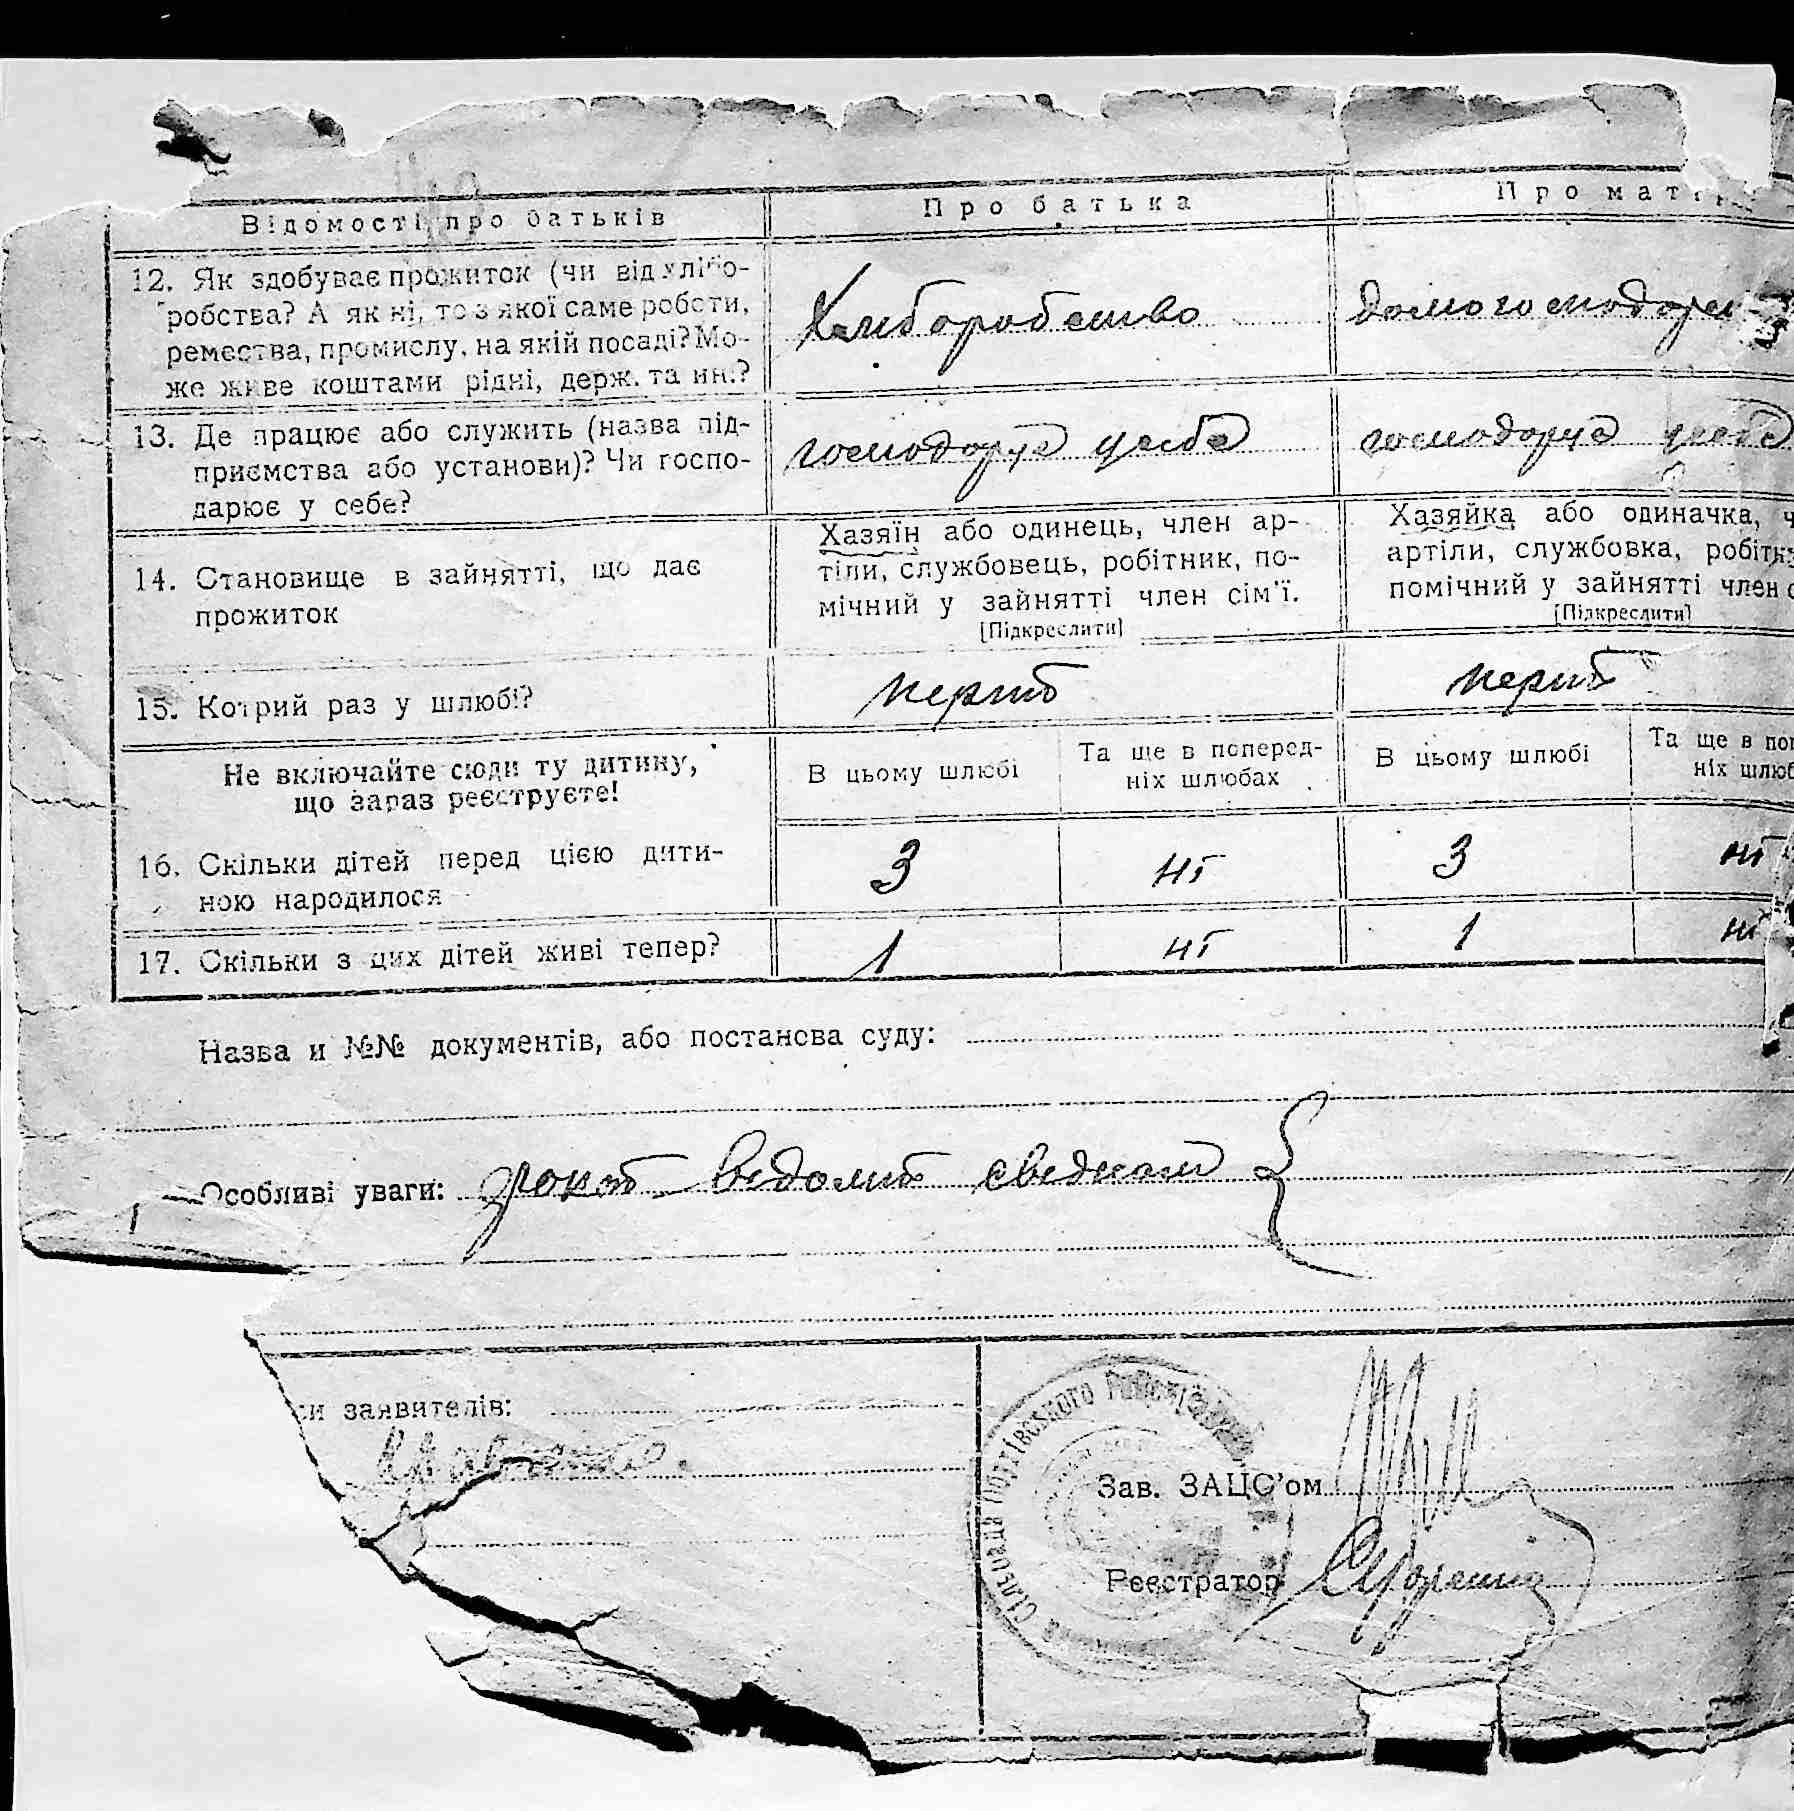 Відомості про батьків
Про батька
Про мат
12. Як здобуває прожиток (чи від хлібо-
робства? А як ні, то з якої саме роботи,
ремества, промислу, на якій посаді? Мо-
же живе коштами рідні, держ. та ин.?
Хлиборобство
13. Де працює або служить (назва під-
приємства або установи)? Чи госпо-
дарює у себе?
господорує усебе
господорує усебе
14. Становище в зайнятті, що дає
прожиток
Хазяїн або одинець, член ар-
тіли, службовець, робітник, по-
мічний у зайнятті член сім'ї.
[Підкреслити]
Хазяйка або одиначка, ч
артіли, службовка, робітн
помічний у зайнятті член с
[Підкреслити]
15. Котрий раз у шлюбі?
перший
перший
Не включайте сюди ту дитину,
що зараз реєструєте!
В цьому шлюбі
Та ще в поперед-
ніх шлюбах
В цьому шлюбі
Та ще в поп
ніх шлюб
16. Скільки дітей перед цією дити-
ною народилося
3
ні
3
ні
17. Скільки з цих дітей живі тепер?
1
ні
1
ні
Назва и №№ документів, або постанова суду:
Особливі уваги:
и заявителів:
Зав. ЗАЦС'ом
Реєстратор